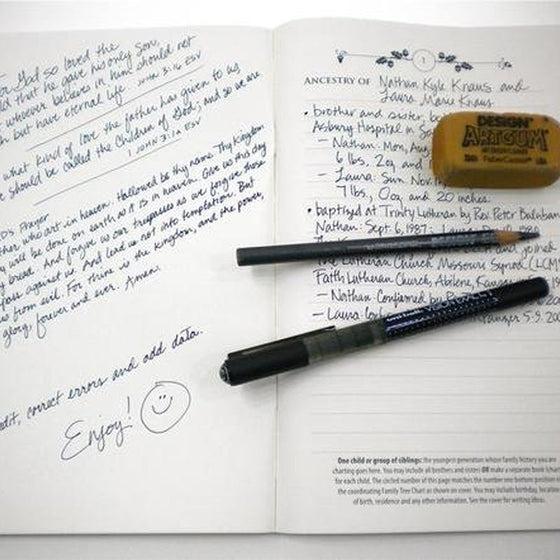 For God so loved the
that he gave his only Son,
whoever believes in him should not
but have eternal life. John 3:16 ESV
what kind of love the father has given to us
we should be called the children of God; and so we are
1 John 3:1a ESV
Prayer
who art in heaven. Hallowed be thy name. Thy Kingdom
will be done on earth as it is in heaven. Give us this day
bread. And forgive us our trespasses as we forgive those
against us. And lead us not into temptation. But
us from evil. For thine is the kingdom, and the power,
glory, forever and ever. Amen.
edit, correct errors and add data.
Enjoy!
1
ANCESTRY OF Nathan Kyle Knaus and
Laura Marie Knaus
• brother and sister, b
Asbury Hospital in
– Nathan: Mon, Aug
6 lbs, 2oz, and
– Laura: Sun Nov.
7 lbs, 0oz, and 20 inches.
• baptized at Trinity Lutheran by Rev. Peter
Nathan: Sept. 6, 1987;
The Lutheran Church Missouri Synod (LCM
Faith Lutheran Church, Abilene,
– Nathan: Confirmed by
– Laura: 5-9-
DESIGN
ARTGUM
FaberCastell
One child or group of siblings: the youngest generation whose family history you are
charting goes here. You may include all brothers and sisters OR make a separate book (chart)
for each child. The circled number of this page matches the number one bottom position on
the coordinating Family Tree Chart as shown on cover. You may include birthday, location
of birth, residence and any other information. See the cover for writing ideas.